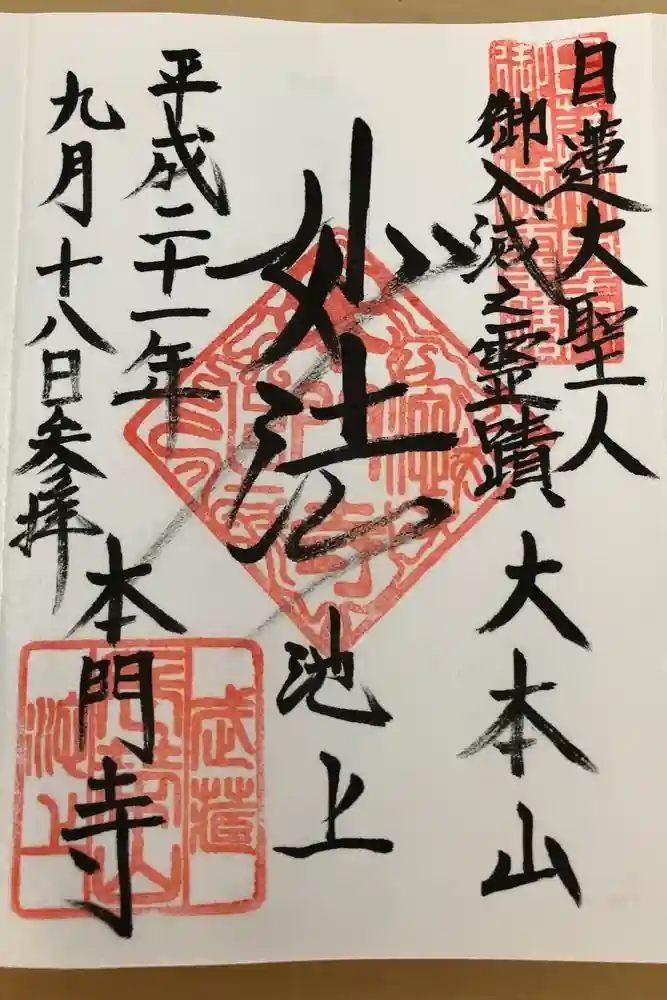 日蓮大聖人
御入滅之霊蹟
大本山
妙法
池上
平成二十一年
九月十八日参拝
本門寺
武蔵
池上